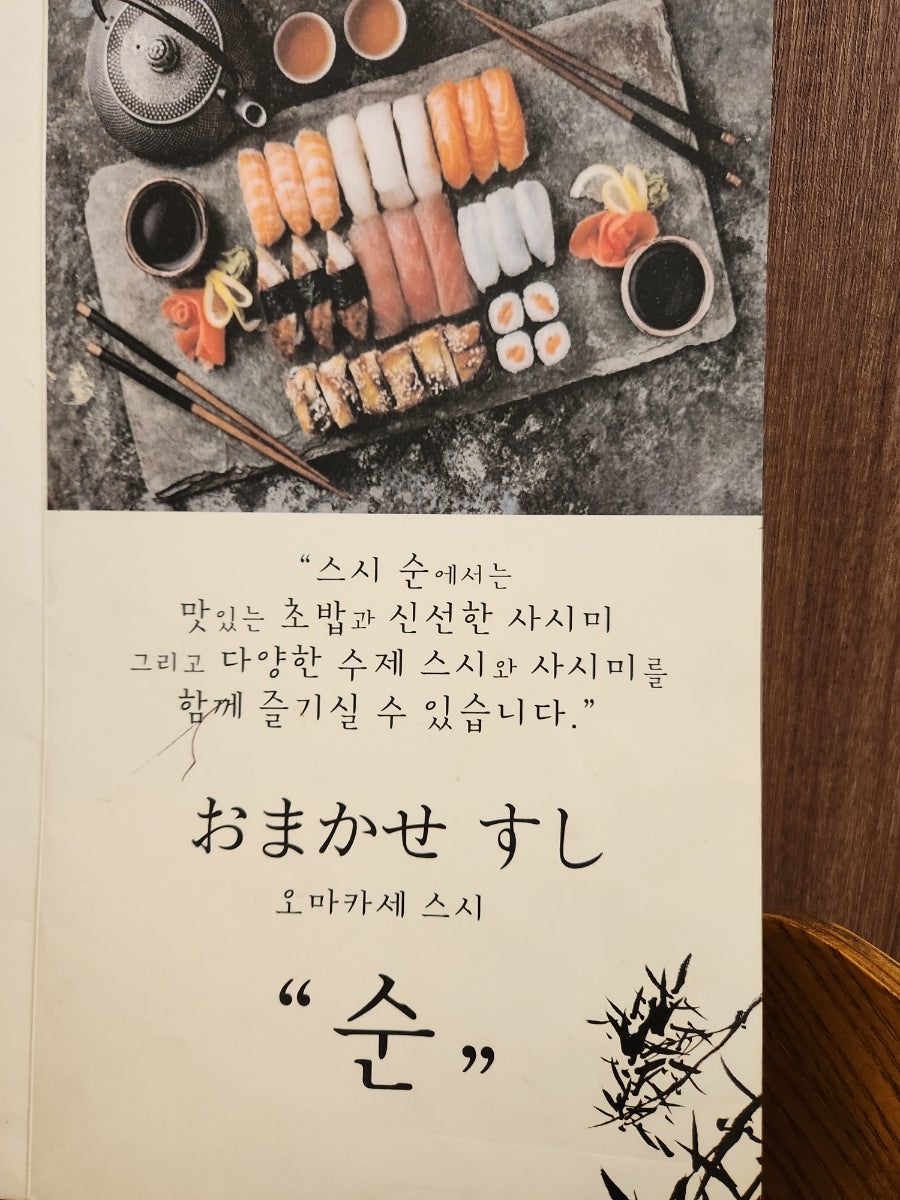 “스시 순에서는
맛있는 초밥과 신선한 사시미
그리고 다양한 수제 스시와 사시미를
함께 즐기실 수 있습니다.”
おまかせ すし
오마카세 스시
“순”